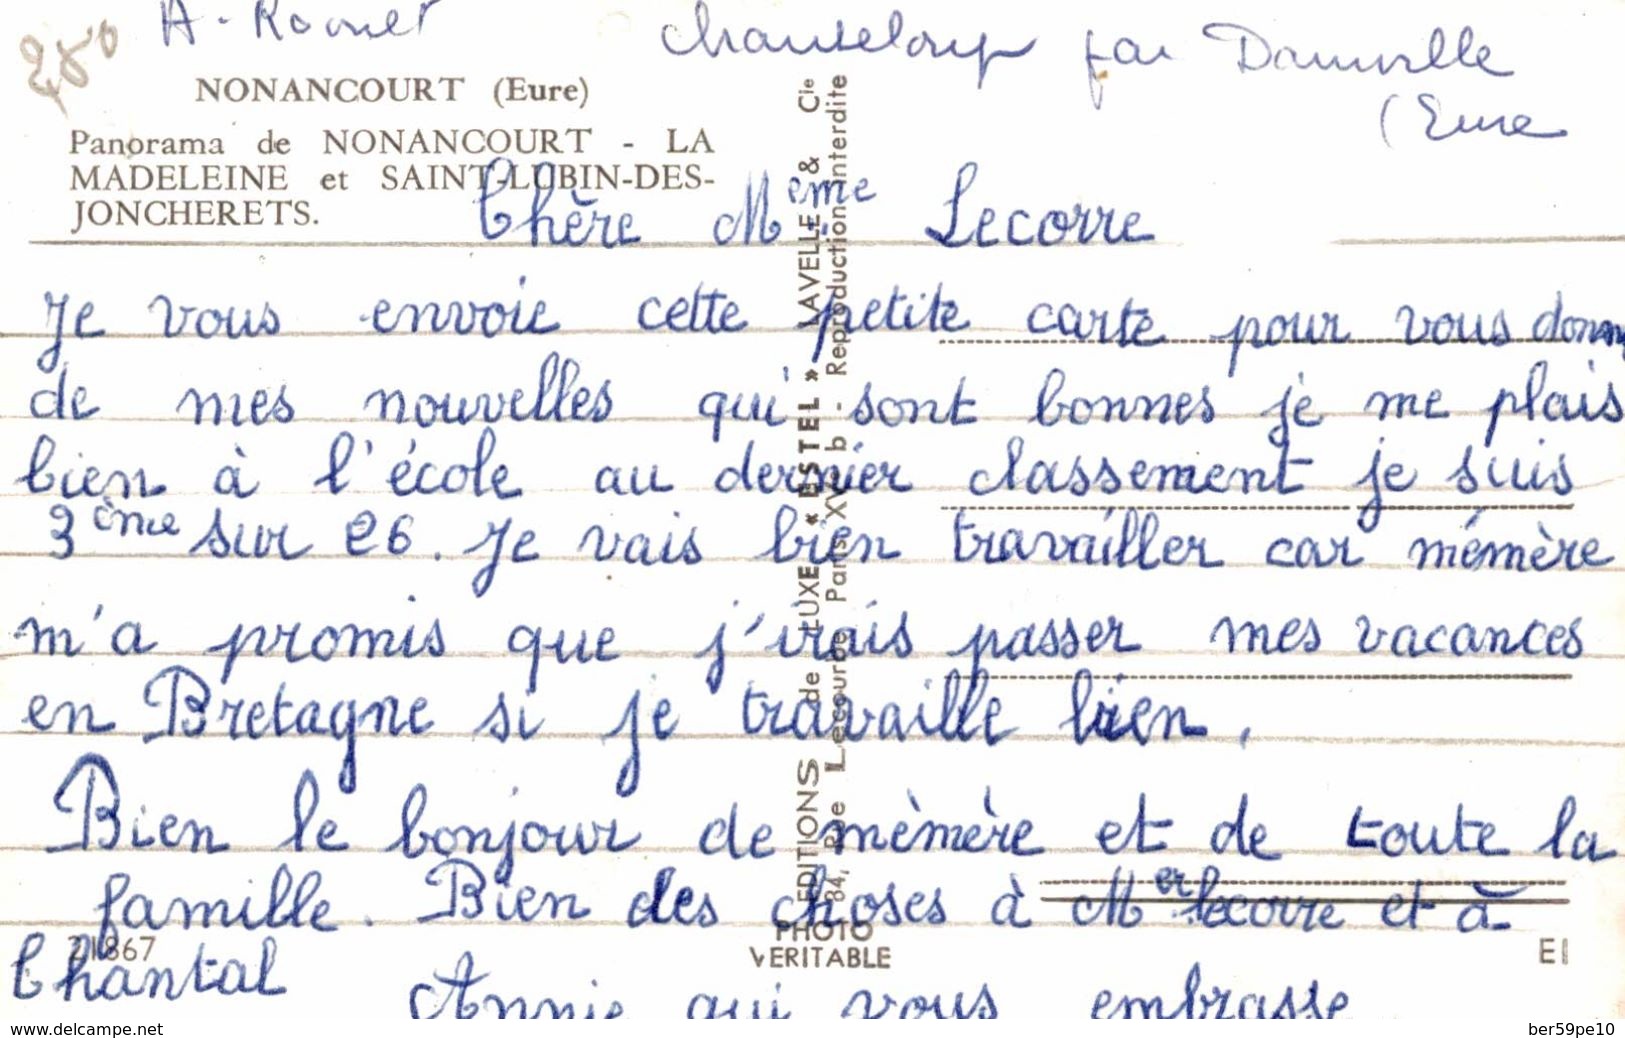 280
Chanteloup par Damville
(Eure
NONANCOURT (Eure)
Panorama de NONANCOURT - LA
MADELEINE et SAINT-LUBIN-DES-
JONCHERETS.
Chère Mème Lecorre
Je vous envoie cette petite carte pour vous donn
de mes nouvelles qui sont bonnes je me plais
bien à l'école au dernier classement je suis
3ème sur 26. Je vais bien travailler car mémère
m'a promis que j'irais passer mes vacances
en Bretagne si je travaille bien.
Bien le bonjour de mèmère et de toute la
famille. Bien des choses à Mer Lecorre et à
Chantal Annie qui vous embrasse
EDITIONS de LUXE « ESTEL » LAVELLE & Cie
84, Rue Lecourbe Paris XV - Reproduction interdite
PHOTO
VERITABLE
21867
EI
www.delcampe.net
ber59pe10